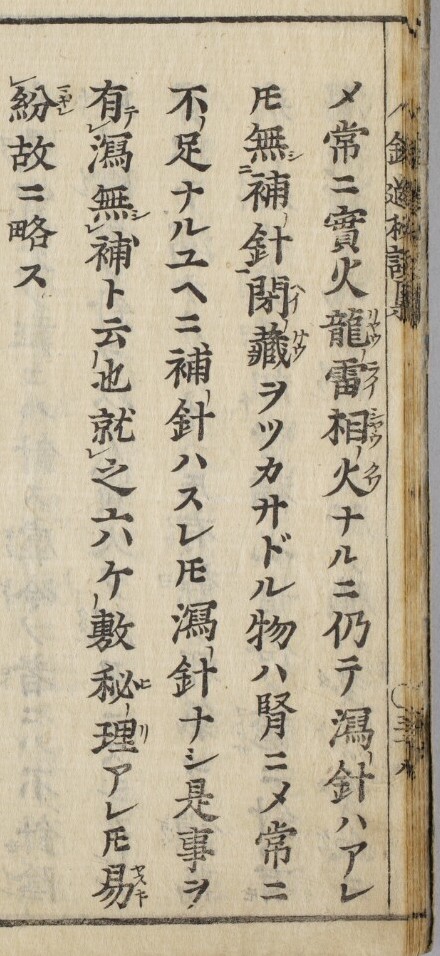 メ常ニ實火龍雷相火ナルニ仍テ瀉針ハアレ
𪜈無補針閉藏ヲツカサドル物ハ腎ニメ常ニ
不足ナルユヘニ補針ハスレ𪜈瀉針ナシ是事ヲ
有瀉無補ト云也就之六ケ敷秘理アレ𪜈易
紛故ニ略ス